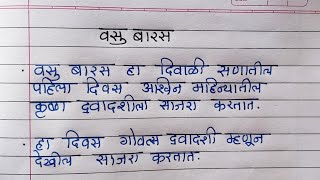 वसु बारस
· वसु बारस हा दिवाळी सणातील
पहिला दिवस आश्विन महिन्यातील
कृष्ण द्वादशीला साजरा करतात.
· हा दिवस गोवत्स द्वादशी म्हणून
देखील साजरा करतात.